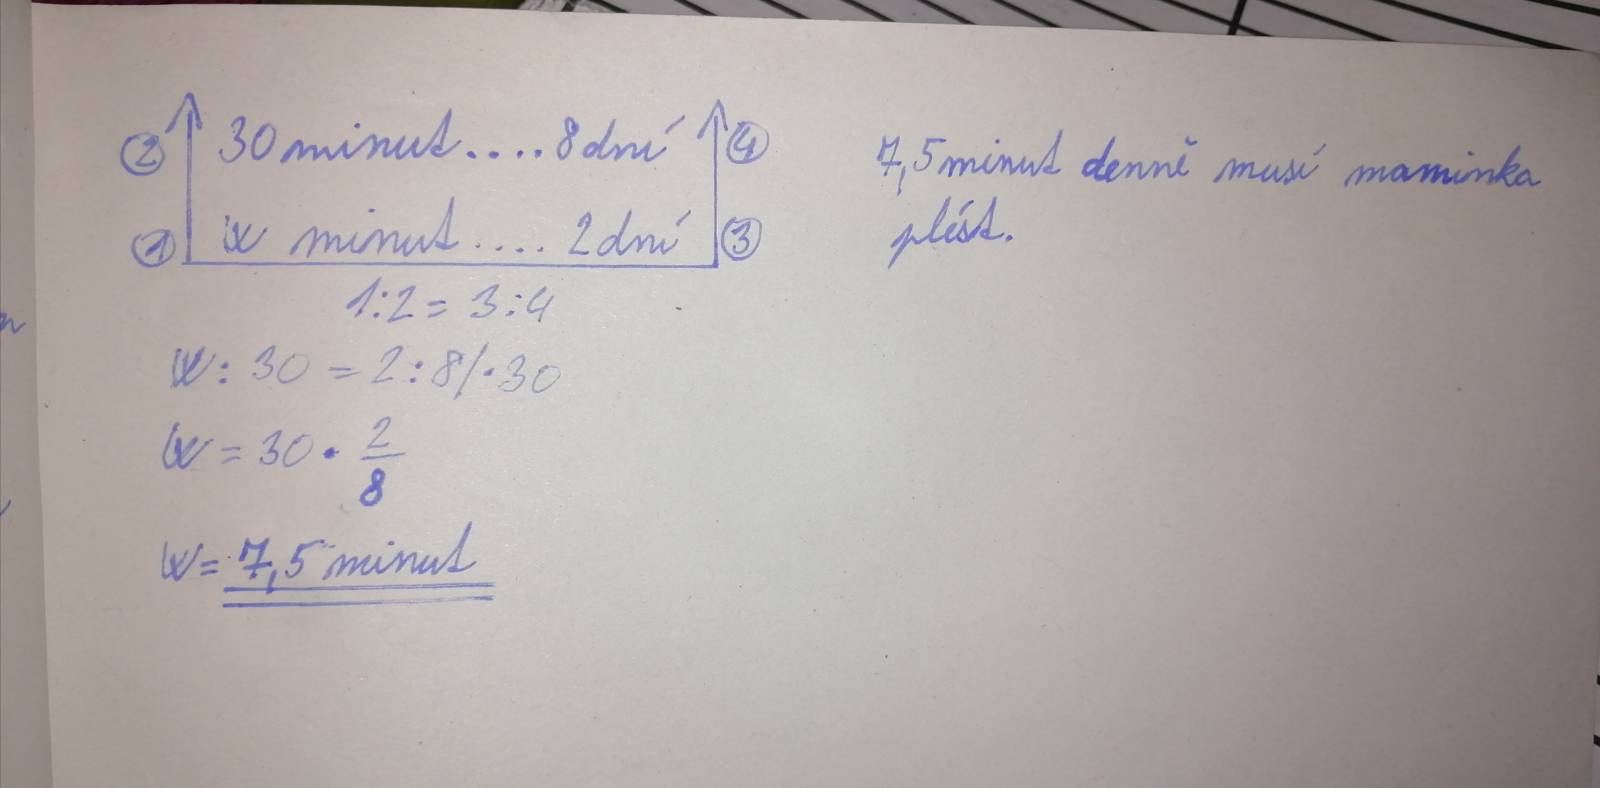 ② 30 minut.... 8 dní ④
① x minut.... 2 dní ③
1:2 = 3:4
x : 30 = 2 : 8 /·30
x = 30 · 2/8
x = 7,5 minut
7,5 minut denně musí maminka
plést.